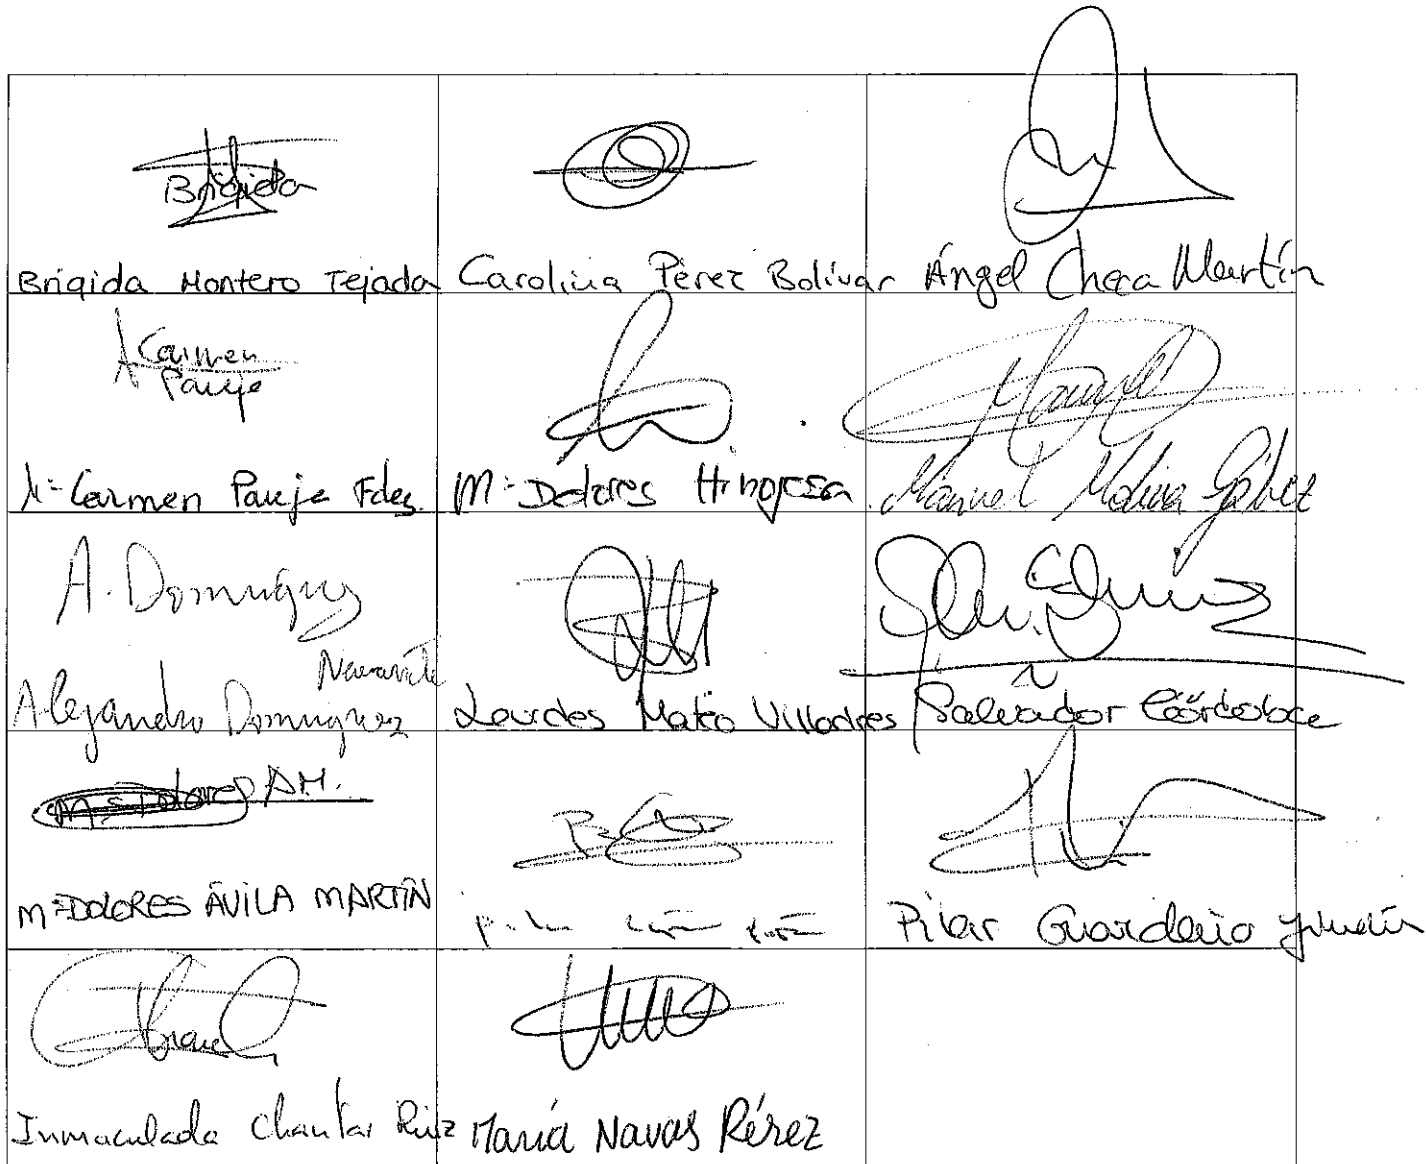 Brigida
Brigida Montero Tejada
Carolina Pérez Bolívar
Ángel Checa Martín
Carmen
Pareja
Mª Carmen Pareja Fdez.
Mª Dolores Hinojosa
Manuel
Manuel Molina Gálvez
A. Dominguez
Navarrete
Alejandro Dominguez
Lourdes Mateo Villodres
Salvador Córdoba
Mª Dolores A.M.
Mª DOLORES ÁVILA MARTÍN
Pilar Guardeño
Inmaculada Chantar Ruiz
María Navas Pérez